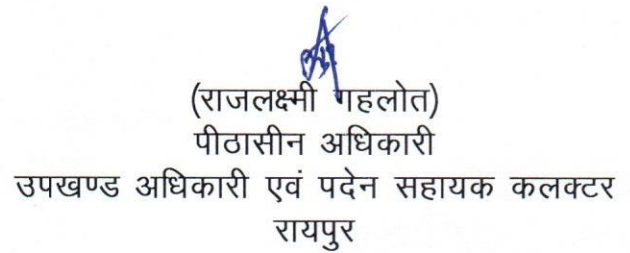 (राजलक्ष्मी गहलोत)
पीठासीन अधिकारी
उपखण्ड अधिकारी एवं पदेन सहायक कलक्टर
रायपुर